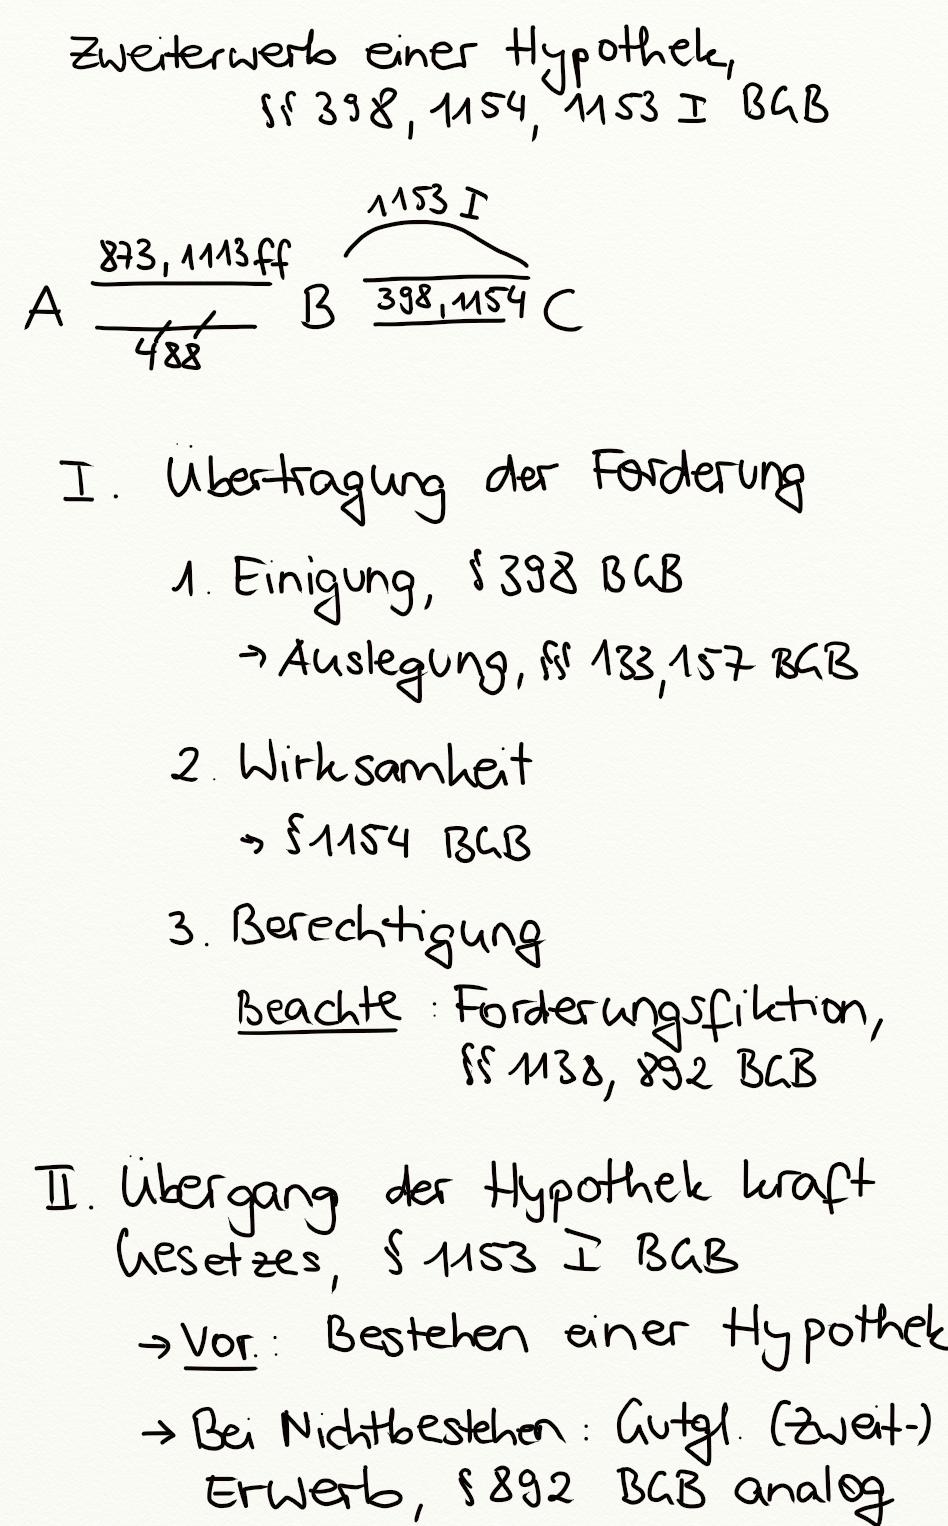 Zweiterwerb einer Hypothek,
§§ 398, 1154, 1153 I BGB
1153 I
873, 1113 ff
A B 398, 1154 C
488
I. Übertragung der Forderung
1. Einigung, § 398 BGB
→ Auslegung, §§ 133, 157 BGB
2. Wirksamkeit
→ § 1154 BGB
3. Berechtigung
Beachte: Forderungsfiktion,
§§ 1138, 892 BGB
II. Übergang der Hypothek kraft
Gesetzes, § 1153 I BGB
→ Vor.: Bestehen einer Hypothek
→ Bei Nichtbestehen: Gutgl. (Zweit-)
Erwerb, § 892 BGB analog